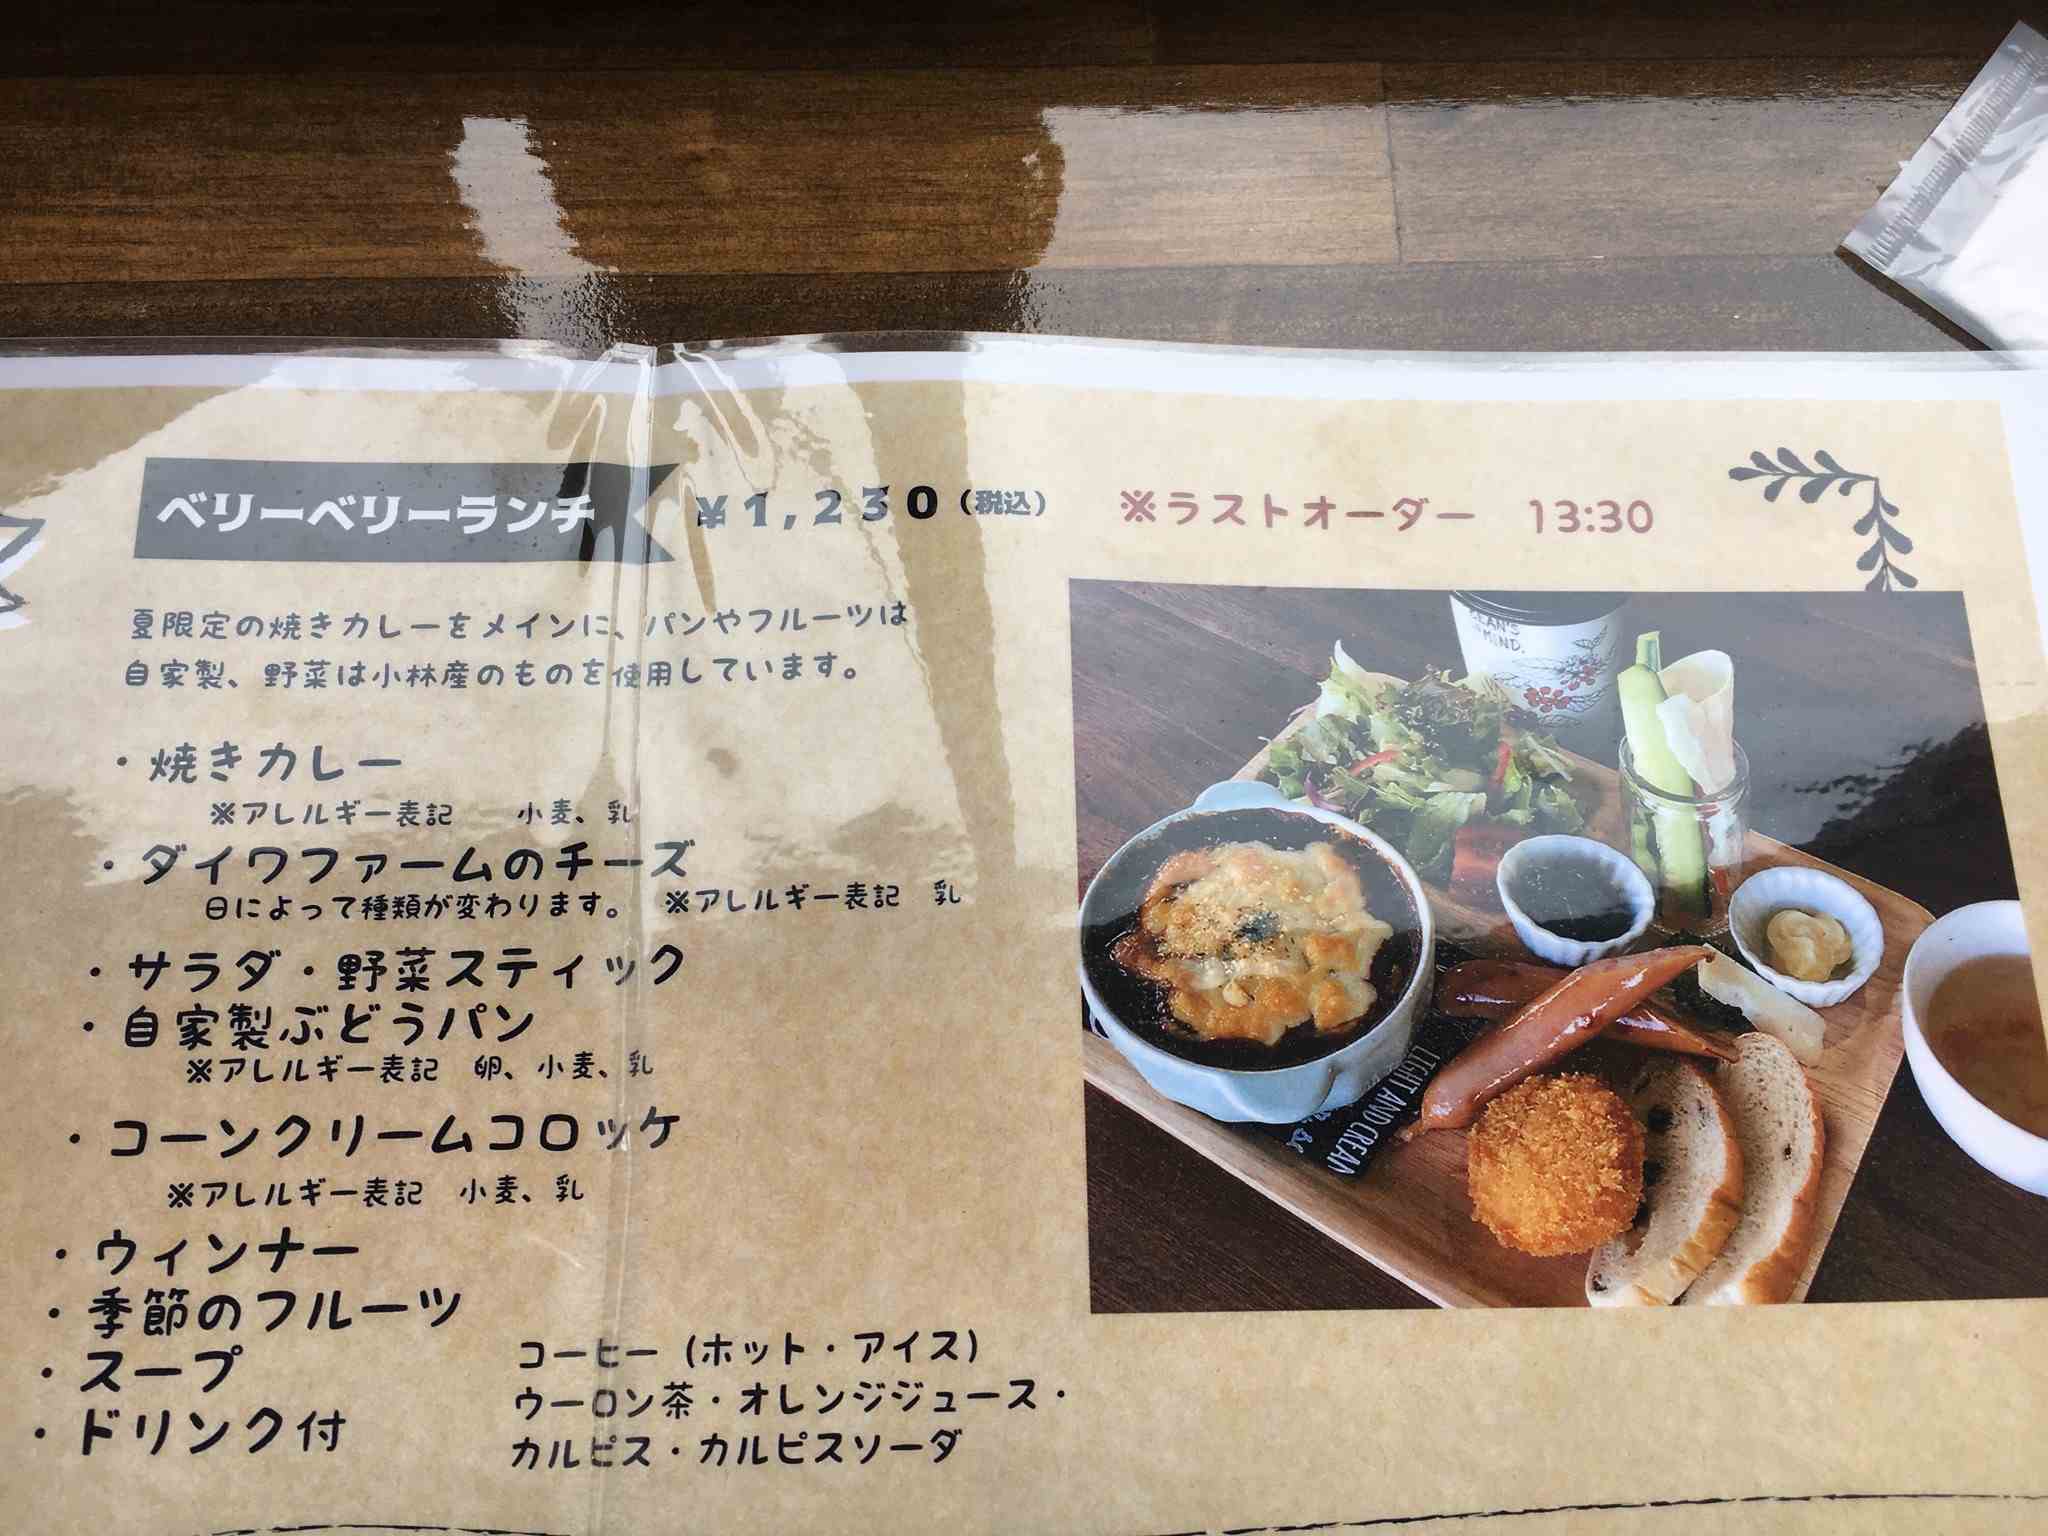 ベリーベリーランチ ¥1,230(税込) ※ラストオーダー 13:30
夏限定の焼きカレーをメインに、パンやフルーツは
自家製、野菜は小林産のものを使用しています。
・焼きカレー
※アレルギー表記 小麦、乳
・ダイワファームのチーズ
日によって種類が変わります。 ※アレルギー表記 乳
・サラダ・野菜スティック
・自家製ぶどうパン
※アレルギー表記 卵、小麦、乳
・コーンクリームコロッケ
※アレルギー表記 小麦、乳
・ウィンナー
・季節のフルーツ
・スープ
・ドリンク付
コーヒー（ホット・アイス）
ウーロン茶・オレンジジュース・
カルピス・カルピスソーダ
BEAN'S
MIND.
LIGHT AND CREAM